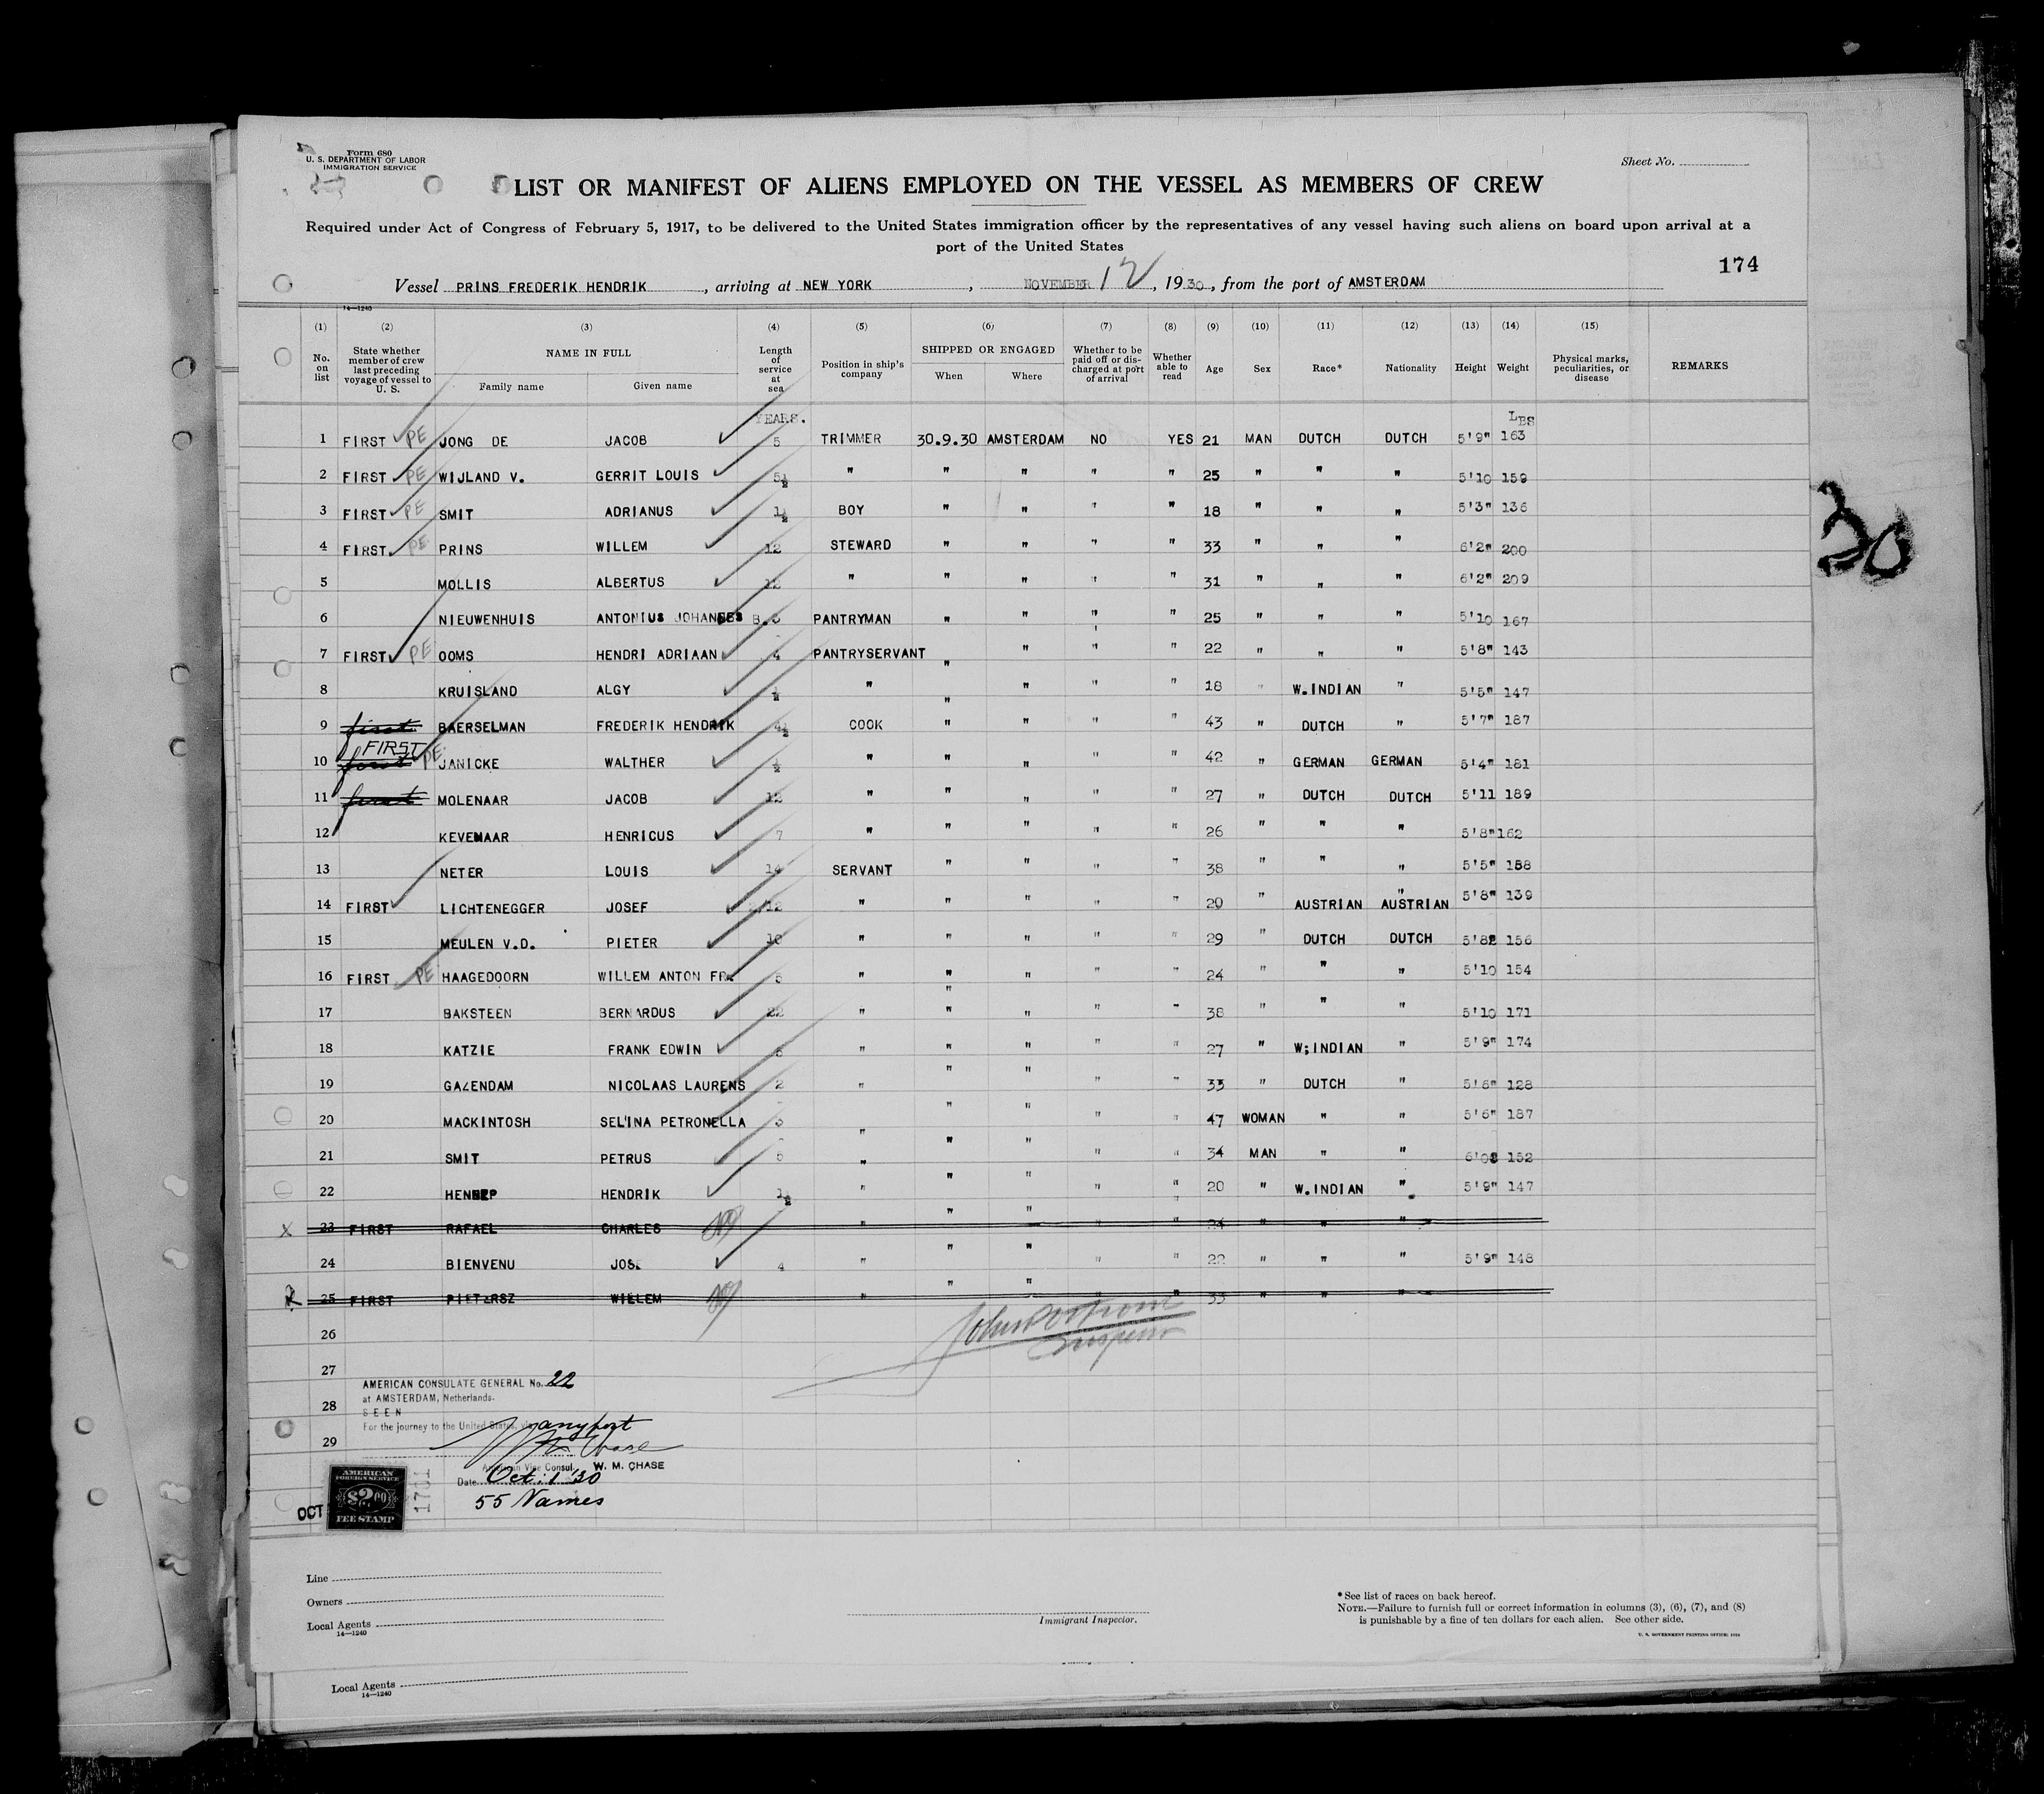 Form 680
U. S. DEPARTMENT OF LABOR
IMMIGRATION SERVICE
Sheet No.
LIST OR MANIFEST OF ALIENS EMPLOYED ON THE VESSEL AS MEMBERS OF CREW
Required under Act of Congress of February 5, 1917, to be delivered to the United States immigration officer by the representatives of any vessel having such aliens on board upon arrival at a
port of the United States
174
Vessel PRINS FREDERIK HENDRIK, arriving at NEW YORK, NOVEMBER 12, 1930, from the port of AMSTERDAM
14—1240
(1) (2) (3) (4) (5) (6) (7) (8) (9) (10) (11) (12) (13) (14) (15)
No. on list State whether member of crew last preceding voyage of vessel to U. S. NAME IN FULL Family name Given name Length of service at sea Position in ship's company SHIPPED OR ENGAGED When Where Whether to be paid off or discharged at port of arrival Whether able to read Age Sex Race* Nationality Height Weight Physical marks, peculiarities, or disease REMARKS
YEARS. LBS
1 FIRST PE JONG DE JACOB 5 TRIMMER 30.9.30 AMSTERDAM NO YES 21 MAN DUTCH DUTCH 5'9" 163
2 FIRST PE WIJLAND V. GERRIT LOUIS 5½ " " " " " 25 " " " 5'10 159
3 FIRST PE SMIT ADRIANUS 1½ BOY " " " " 18 " " " 5'3" 136
4 FIRST PE PRINS WILLEM 12 STEWARD " " " " 33 " " " 6'2" 200
5 MOLLIS ALBERTUS 12 " " " " " 31 " " " 6'2" 209
6 NIEUWENHUIS ANTONIUS JOHANNES B. PANTRYMAN " " " " 25 " " " 5'10 167
7 FIRST PE OOMS HENDRI ADRIAAN 4 PANTRYSERVANT " " " " 22 " " " 5'8" 143
8 KRUISLAND ALGY ½ " " " " " 18 " W.INDIAN " 5'5" 147
9 first BAERSELMAN FREDERIK HENDRIK 4½ COOK " " " " 43 " DUTCH " 5'7" 187
10 first FIRST PE JANICKE WALTHER ½ " " " " " 42 " GERMAN GERMAN 5'4" 181
11 first MOLENAAR JACOB 12 " " " " " 27 " DUTCH DUTCH 5'11 189
12 KEVENAAR HENRICUS 7 " " " " " 26 " " " 5'8" 162
13 NETER LOUIS 14 SERVANT " " " " 38 " " " 5'5" 158
14 FIRST LICHTENEGGER JOSEF " " " " " 20 " AUSTRIAN AUSTRIAN 5'8" 139
15 MEULEN V.D. PIETER 10 " " " " " 29 " DUTCH DUTCH 5'8 156
16 FIRST PE HAAGEDOORN WILLEM ANTON FR. 5 " " " " " 24 " " " 5'10 154
17 BAKSTEEN BERNARDUS 22 " " " " " 38 " " " 5'10 171
18 KATZIE FRANK EDWIN 6 " " " " " 27 " W;INDIAN " 5'9" 174
19 GAZENDAM NICOLAAS LAURENS 2 " " " " " 33 " DUTCH " 5'6" 128
20 MACKINTOSH SELINA PETRONELLA " " " " " 47 WOMAN " " 5'6" 187
21 SMIT PETRUS 5 " " " " " 34 MAN " " 6'0 152
22 HENNEP HENDRIK 1½ " " " " " 20 " W.INDIAN " 5'9" 147
X 23 FIRST RAFAEL CHARLES " " " " " 24 " " "
24 BIENVENU JOSE 4 " " " " " 22 " " " 5'9" 148
25 FIRST PIETERSZ WILLEM " " " " " 33 " " "
26
27
28
29
30
AMERICAN CONSULATE GENERAL No. 22
at AMSTERDAM, Netherlands.
SEEN
For the journey to the United States, via any port
American Vice Consul. W. M. CHASE
Date Oct. 1 '30
55 Names
AMERICAN FOREIGN SERVICE $2 FEE STAMP
OCT
1701
Line
Owners
Local Agents
14—1240
Immigrant Inspector.
* See list of races on back hereof.
NOTE.—Failure to furnish full or correct information in columns (3), (6), (7), and (8)
is punishable by a fine of ten dollars for each alien. See other side.
Local Agents
14—1240